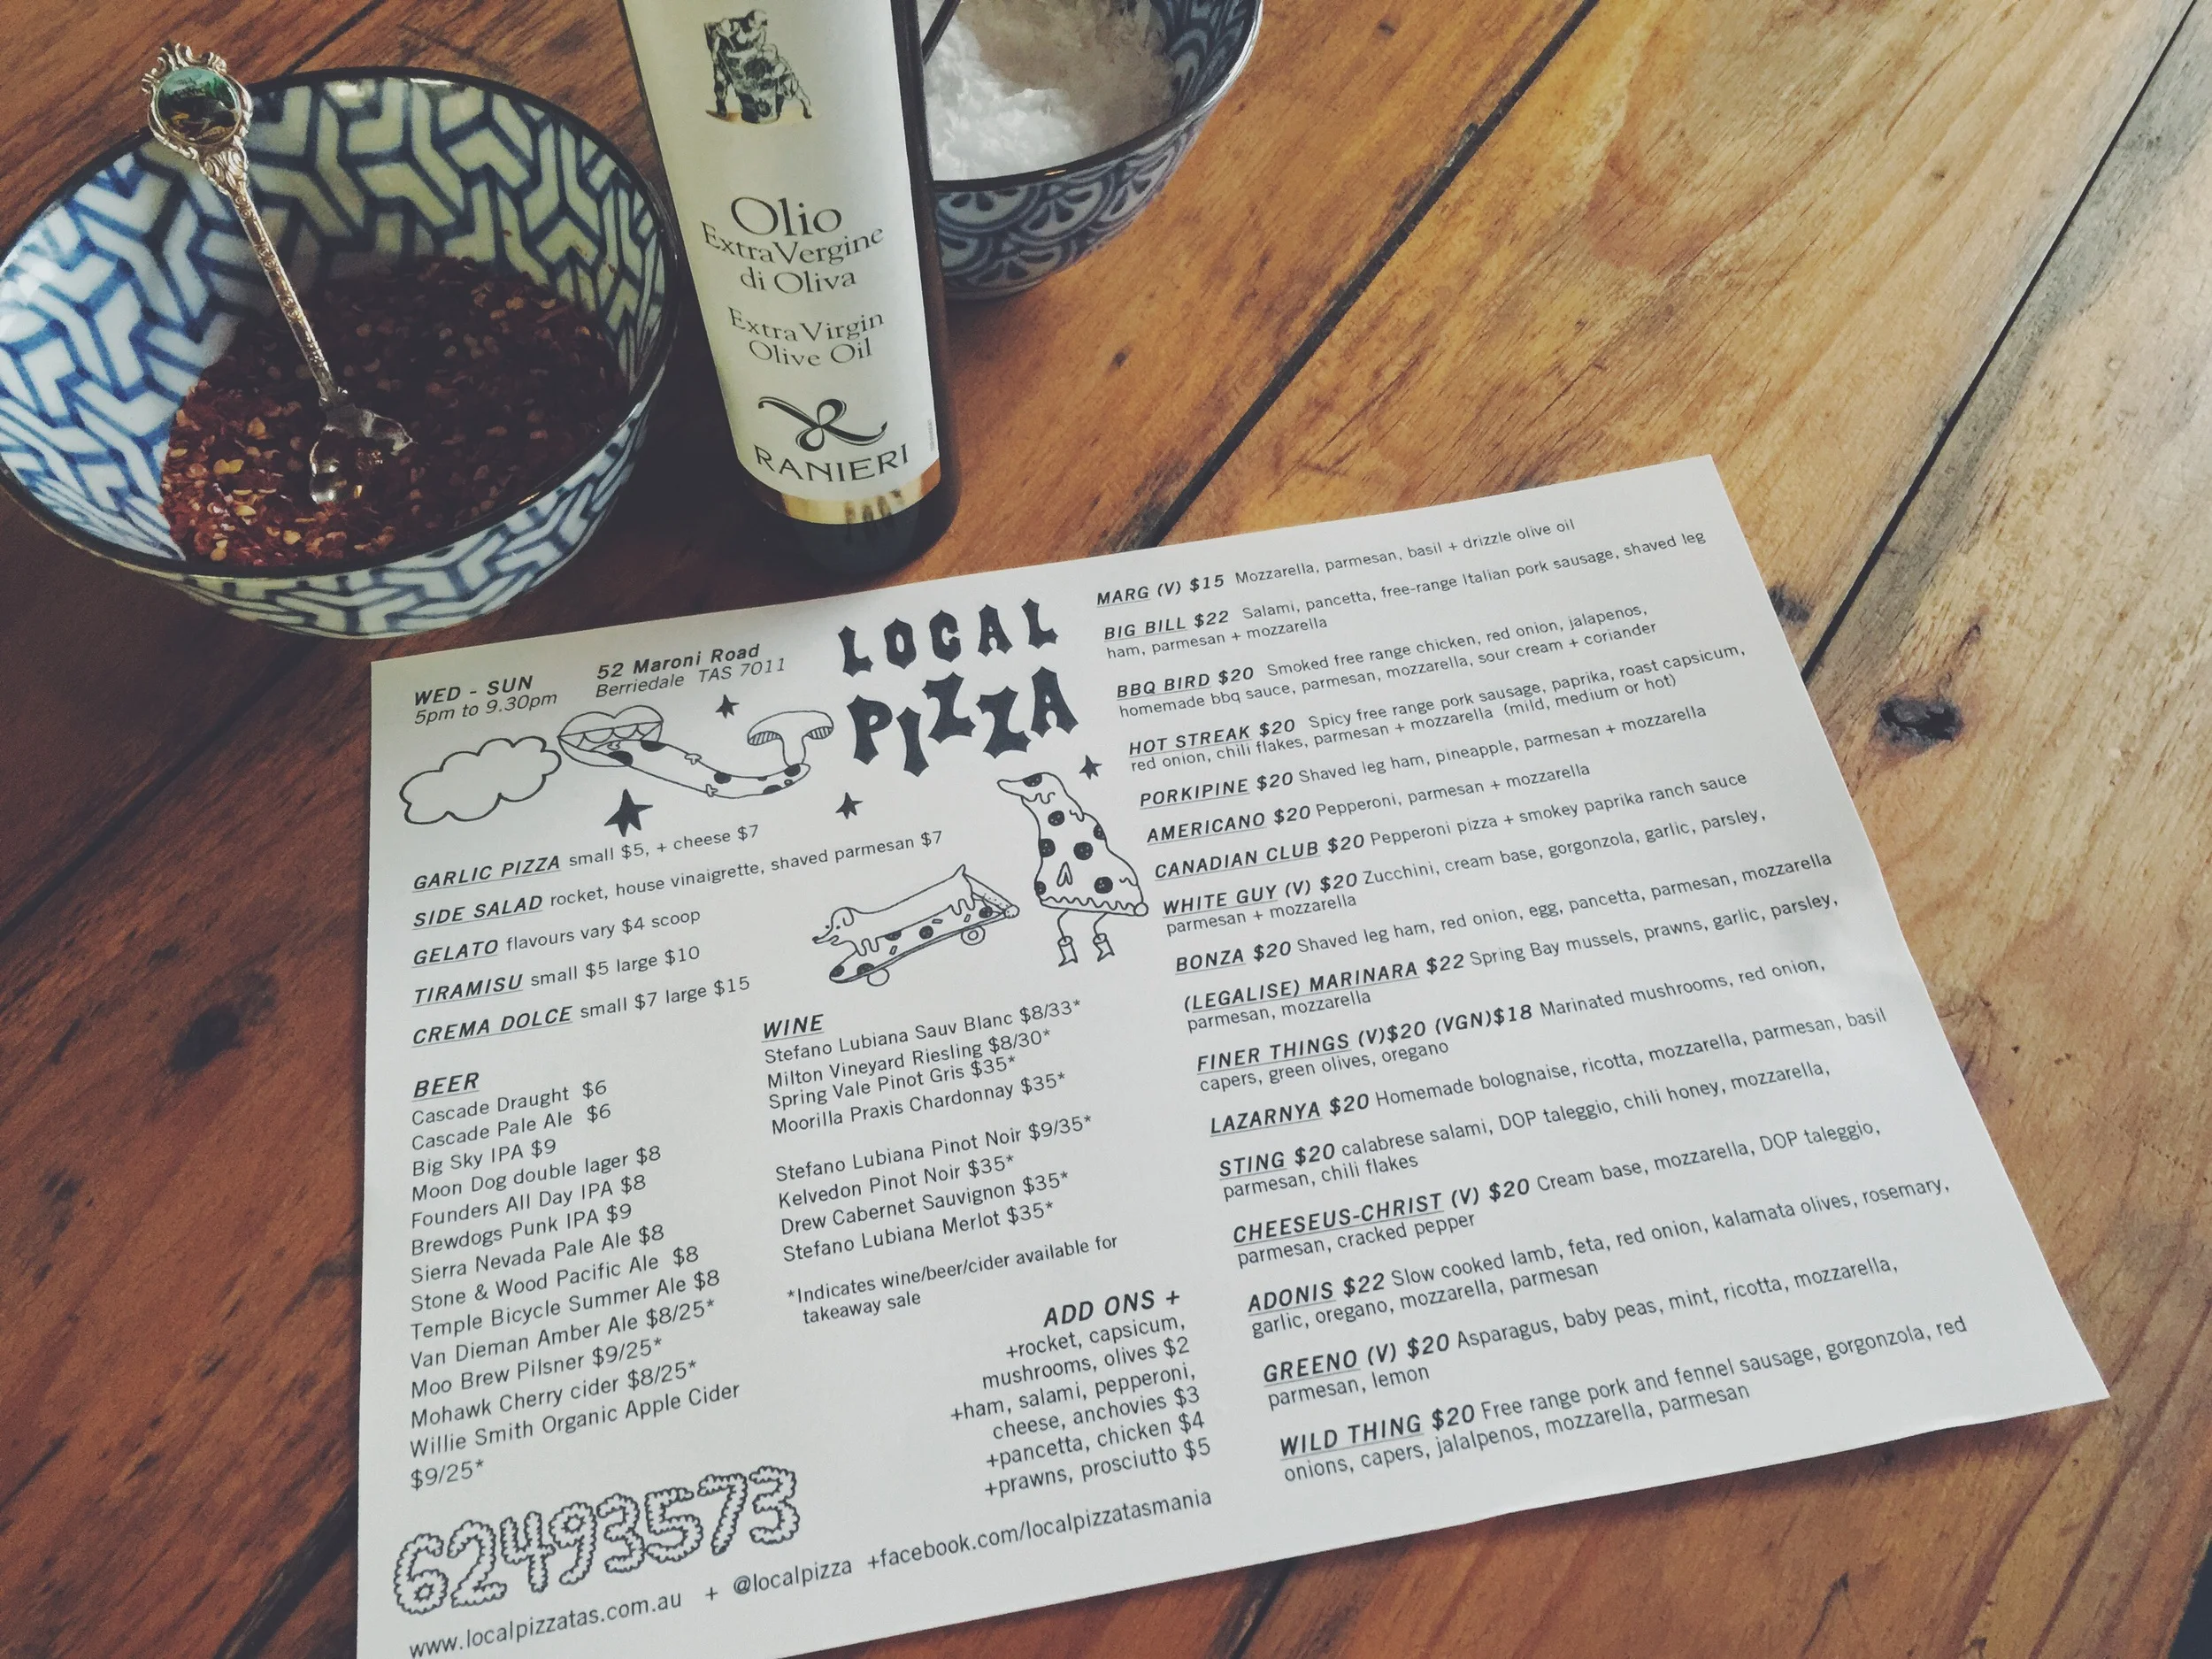 Olio
ExtraVergine
di Oliva
Extra Virgin
Olive Oil
RANIERI
WED - SUN
5pm to 9.30pm
52 Maroni Road
Berriedale TAS 7011
LOCAL
PIZZA
GARLIC PIZZA small $5, + cheese $7
SIDE SALAD rocket, house vinaigrette, shaved parmesan $7
GELATO flavours vary $4 scoop
TIRAMISU small $5 large $10
CREMA DOLCE small $7 large $15
BEER
Cascade Draught $6
Cascade Pale Ale $6
Big Sky IPA $9
Moon Dog double lager $8
Founders All Day IPA $8
Brewdogs Punk IPA $9
Sierra Nevada Pale Ale $8
Stone & Wood Pacific Ale $8
Temple Bicycle Summer Ale $8
Van Dieman Amber Ale $8/25*
Moo Brew Pilsner $9/25*
Mohawk Cherry cider $8/25*
Willie Smith Organic Apple Cider
$9/25*
WINE
Stefano Lubiana Sauv Blanc $8/33*
Milton Vineyard Riesling $8/30*
Spring Vale Pinot Gris $35*
Moorilla Praxis Chardonnay $35*
Stefano Lubiana Pinot Noir $9/35*
Kelvedon Pinot Noir $35*
Drew Cabernet Sauvignon $35*
Stefano Lubiana Merlot $35*
*Indicates wine/beer/cider available for
takeaway sale
ADD ONS +
+rocket, capsicum,
mushrooms, olives $2
+ham, salami, pepperoni,
cheese, anchovies $3
+pancetta, chicken $4
+prawns, prosciutto $5
62493573
www.localpizzatas.com.au + @localpizza +facebook.com/localpizzatasmania
MARG (V) $15 Mozzarella, parmesan, basil + drizzle olive oil
BIG BILL $22 Salami, pancetta, free-range Italian pork sausage, shaved leg
ham, parmesan + mozzarella
BBQ BIRD $20 Smoked free range chicken, red onion, jalapenos,
homemade bbq sauce, parmesan, mozzarella, sour cream + coriander
HOT STREAK $20 Spicy free range pork sausage, paprika, roast capsicum,
red onion, chili flakes, parmesan + mozzarella (mild, medium or hot)
PORKIPINE $20 Shaved leg ham, pineapple, parmesan + mozzarella
AMERICANO $20 Pepperoni, parmesan + mozzarella
CANADIAN CLUB $20 Pepperoni pizza + smokey paprika ranch sauce
WHITE GUY (V) $20 Zucchini, cream base, gorgonzola, garlic, parsley,
parmesan + mozzarella
BONZA $20 Shaved leg ham, red onion, egg, pancetta, parmesan, mozzarella
(LEGALISE) MARINARA $22 Spring Bay mussels, prawns, garlic, parsley,
parmesan, mozzarella
FINER THINGS (V)$20 (VGN)$18 Marinated mushrooms, red onion,
capers, green olives, oregano
LAZARNYA $20 Homemade bolognaise, ricotta, mozzarella, parmesan, basil
STING $20 calabrese salami, DOP taleggio, chili honey, mozzarella,
parmesan, chili flakes
CHEESEUS-CHRIST (V) $20 Cream base, mozzarella, DOP taleggio,
parmesan, cracked pepper
ADONIS $22 Slow cooked lamb, feta, red onion, kalamata olives, rosemary,
garlic, oregano, mozzarella, parmesan
GREENO (V) $20 Asparagus, baby peas, mint, ricotta, mozzarella,
parmesan, lemon
WILD THING $20 Free range pork and fennel sausage, gorgonzola, red
onions, capers, jalalpenos, mozzarella, parmesan